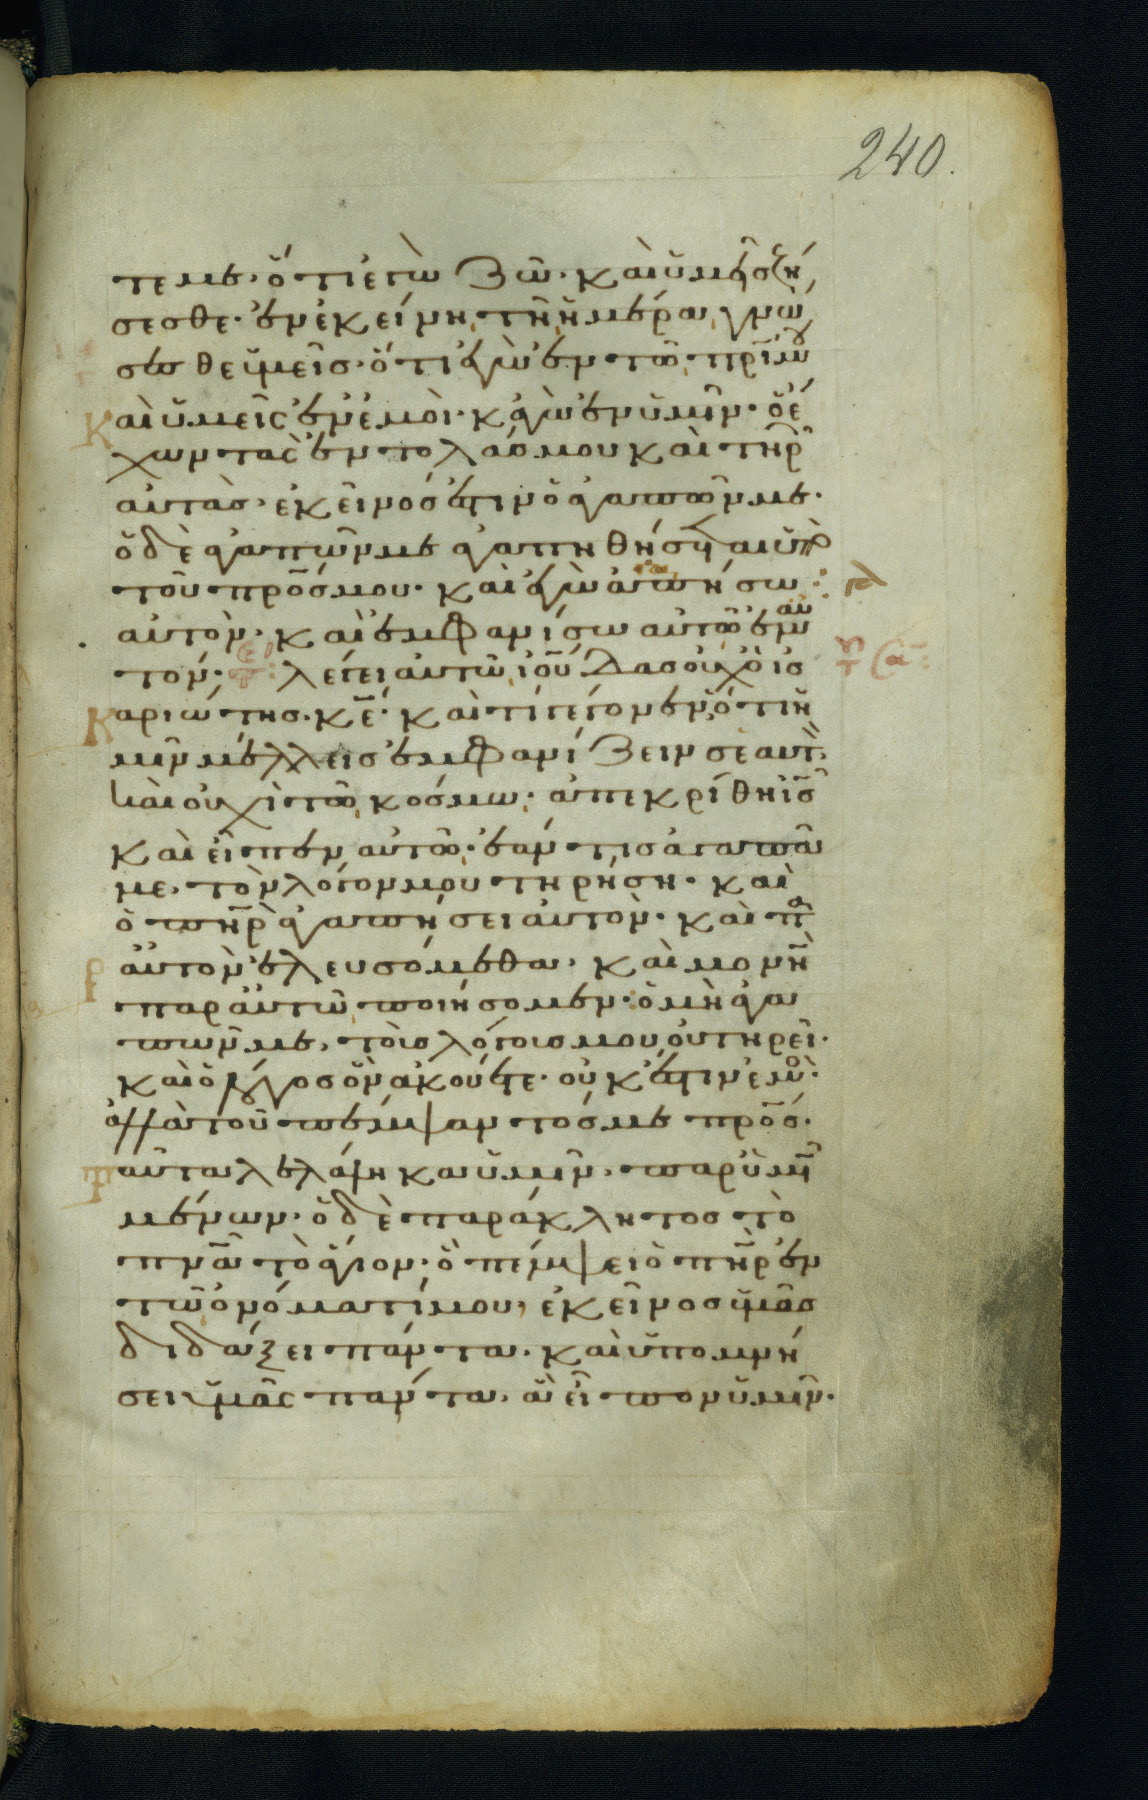 240.
τε με· ὅτι ἐγὼ ζῶ· καὶ ὑμεῖς ζή
σεσθε· ἐν ἐκείνη τῆ ἡμέρα γνώ
σεσθε ὑμεῖς· ὅτι ἐγὼ ἐν τῶ πρί μου
Καὶ ὑμεῖς ἐν ἐμοὶ· κἀγὼ ἐν ὑμῖν· ὁ ἔ
χων τὰς ἐντολάς μου καὶ τηρ
αὐτὰς· ἐκεῖνός ἐστιν ὁ ἀγαπῶν με·
ὁ δὲ ἀγαπῶν με ἀγαπηθήσεται ὑπὸ
τοῦ πρός μου· καὶ ἐγὼ ἀγαπήσω
αὐτὸν· καὶ ἐμφανίσω αὐτῶ ἐμαυ
τόν· λέγει αὐτῶ ἰούδας οὐχ ὁ ἰσ
Καριώτης· κε· καὶ τί γέγονεν ὅτι ἡ
μῖν μέλλεις ἐμφανίζειν σεαυτ
καὶ οὐχὶ τῶ κόσμω· ἀπεκρίθη ις
καὶ εἶπεν αὐτῶ· ἐάν τις ἀγαπᾶ
με, τὸν λόγον μου τηρήση· καὶ
ὁ πηρ ἀγαπήσει αὐτὸν· καὶ πρ
αὐτὸν ἐλευσόμεθα, καὶ μονὴ
παρ αὐτῶ ποιήσομεν· ὁ μὴ ἀγα
πῶν με, τοὺς λόγους μου οὐ τηρεῖ·
καὶ ὁ λόγος ὃν ἀκούετε· οὐκ ἔστιν ἐμὸ·
ἀλλὰ τοῦ πέμψαντός με πρός·
Ταῦτα λελάληκα ὑμῖν, παρ ὑμῖ
μένων· ὁ δὲ παράκλητος τὸ
πνα τὸ ἅγιον· ὃ πέμψει ὁ πηρ ἐν
τῶ ὀνόματί μου, ἐκεῖνος ὑμᾶς
διδάξει πάντα· καὶ ὑπομνή
σει ὑμᾶς πάντα, ἃ εἶπον ὑμῖν·